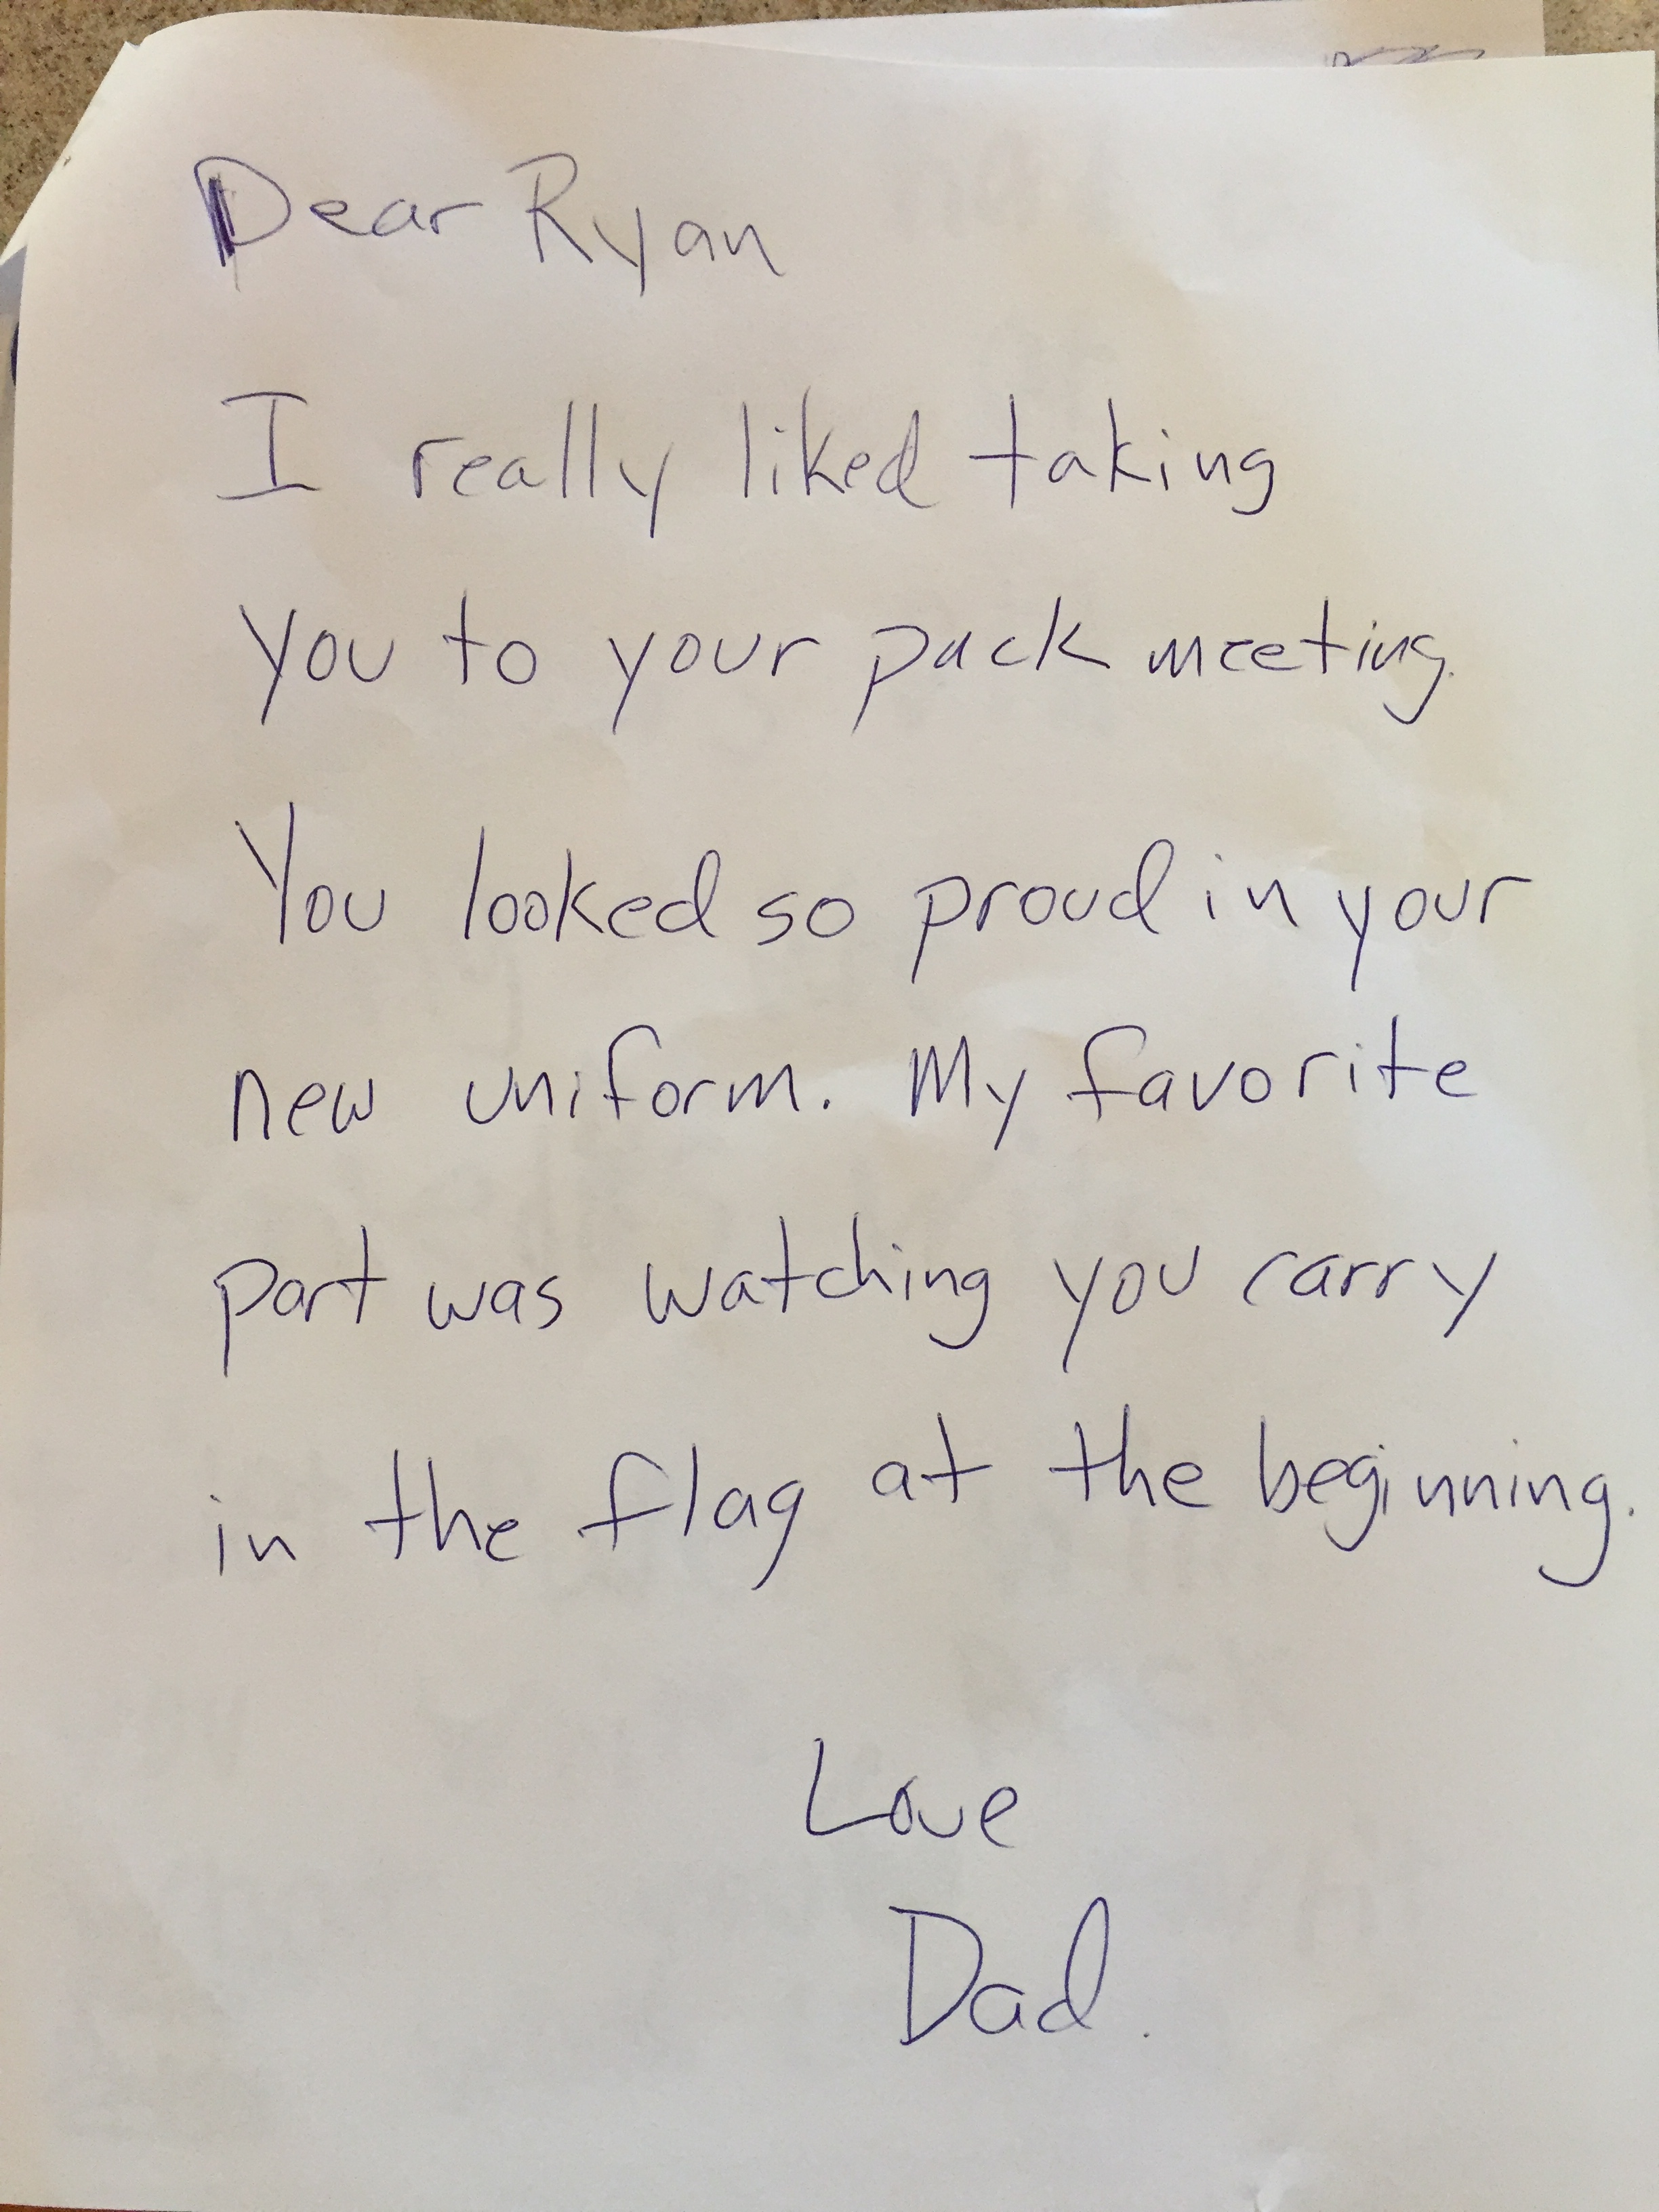 Dear Ryan
I really liked taking
you to your pack meeting.
You looked so proud in your
new uniform. My favorite
part was watching you carry
in the flag at the beginning.
Love
Dad.